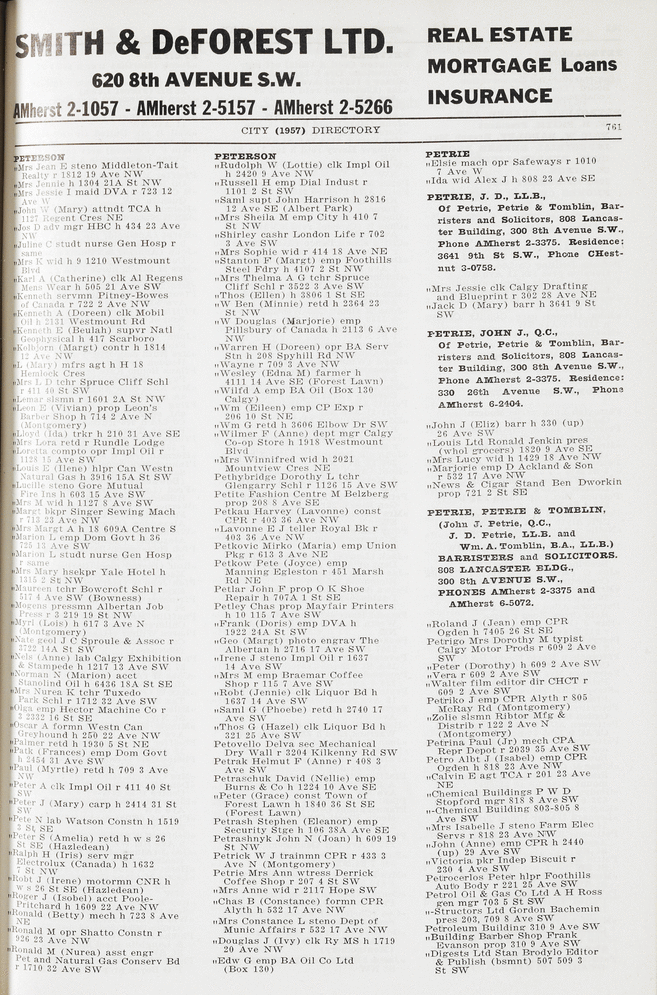 SMITH & DeFOREST LTD.
620 8th AVENUE S.W.
AMherst 2-1057 - AMherst 2-5157 - AMherst 2-5266
REAL ESTATE
MORTGAGE Loans
INSURANCE
CITY (1957) DIRECTORY
761
PETERSON
"Mrs Jean E steno Middleton-Tait
Realty r 1812 19 Ave NW
"Mrs Jennie h 1304 21A St NW
"Mrs Jessie I maid DVA r 723 12
Ave W
"John W (Mary) attndt TCA h
1127 Regent Cres NE
"Jos D adv mgr HBC h 434 23 Ave
NW
"Juline C studt nurse Gen Hosp r
same
"Mrs K wid h 9 1210 Westmount
Blvd
"Karl A (Catherine) clk Al Regens
Mens Wear h 505 21 Ave SW
"Kenneth servmn Pitney-Bowes
of Canada r 722 2 Ave NW
"Kenneth A (Doreen) clk Mobil
Oil h 2131 Westmount Rd
"Kenneth E (Beulah) supvr Natl
Geophysical h 417 Scarboro
"Kolbjorn (Margt) contr h 1814
12 Ave NW
"L (Mary) mfrs agt h H 18
Hemlock Cres
"Mrs L D tchr Spruce Cliff Schl
r 411 40 St SW
"Lemar slsmn r 1601 2A St NW
"Leon E (Vivian) prop Leon's
Barber Shop h 714 2 Ave N
(Montgomery)
"Lloyd (Ida) trkr h 210 31 Ave SE
"Mrs Lora retd r Rundle Lodge
"Loretta compto opr Impl Oil r
1128 15 Ave SW
"Louis E (Ilene) hlpr Can Westn
Natural Gas h 3916 15A St SW
"Lucille steno Gore Mutual
Fire Ins h 603 15 Ave SW
"Mrs M wid h 1127 8 Ave SW
"Margt bkpr Singer Sewing Mach
r 713 23 Ave NW
"Mrs Margt A h 18 609A Centre S
"Marion L emp Dom Govt h 36
725 13 Ave SW
"Marion L studt nurse Gen Hosp
r same
"Mrs Mary hsekpr Yale Hotel h
1315 2 St NW
"Maureen tchr Bowcroft Schl r
517 4 Ave SW (Bowness)
"Mogens pressmn Albertan Job
Press r 3 219 19 St NW
"Myrl (Lois) h 617 3 Ave N
(Montgomery)
"Nate geol J C Sproule & Assoc r
3722 14A St SW
"Nels (Anne) lab Calgy Exhibition
& Stampede h 1217 13 Ave SW
"Norman N (Marion) acct
Stanolind Oil h 6436 18A St SE
"Mrs Nurea K tchr Tuxedo
Park Schl r 1712 32 Ave SW
"Olga emp Hector Machine Co r
3 2332 16 St SE
"Oscar A formn Westn Can
Greyhound h 250 22 Ave NW
"Palmer retd h 1930 5 St NE
"Patk (Frances) emp Dom Govt
h 2454 31 Ave SW
"Paul (Myrtle) retd h 709 3 Ave
NW
"Peter A clk Impl Oil r 411 40 St
SW
"Peter J (Mary) carp h 2414 31 St
SW
"Pete N lab Watson Constn h 1519
3 St SE
"Peter S (Amelia) retd h w s 26
St SE (Hazledean)
"Ralph H (Iris) serv mgr
Electrolux (Canada) h 1632
7 St NW
"Robt J (Irene) motormn CNR h
w s 26 St SE (Hazledean)
"Roger J (Isobel) acct Poole-
Pritchard h 1609 22 Ave NW
"Ronald (Betty) mech h 723 8 Ave
NE
"Ronald M opr Shatto Constn r
926 23 Ave NW
"Ronald M (Nurea) asst engr
Pet and Natural Gas Conserv Bd
r 1710 32 Ave SW
PETERSON
"Rudolph W (Lottie) clk Impl Oil
h 2420 9 Ave NW
"Russell H emp Dial Indust r
1101 2 St SW
"Saml supt John Harrison h 2816
12 Ave SE (Albert Park)
"Mrs Sheila M emp City h 410 7
St NW
"Shirley cashr London Life r 702
3 Ave SW
"Mrs Sophie wid r 414 18 Ave NE
"Stanton F (Margt) emp Foothills
Steel Fdry h 4107 2 St NW
"Mrs Thelma A G tchr Spruce
Cliff Schl r 3522 3 Ave SW
"Thos (Ellen) h 3806 1 St SE
"W Ben (Minnie) retd h 2364 23
St NW
"W Douglas (Marjorie) emp
Pillsbury of Canada h 2113 6 Ave
NW
"Warren H (Doreen) opr BA Serv
Stn h 208 Spyhill Rd NW
"Wayne r 709 3 Ave NW
"Wesley (Edna M) farmer h
4111 14 Ave SE (Forest Lawn)
"Wilfd A emp BA Oil (Box 130
Calgy)
"Wm (Eileen) emp CP Exp r
206 10 St NE
"Wm G retd h 3606 Elbow Dr SW
"Wilmer F (Anne) dept mgr Calgy
Co-op Store h 1918 Westmount
Blvd
"Mrs Winnifred wid h 2021
Mountview Cres NE
Pethybridge Dorothy L tchr
Glengarry Schl r 1126 15 Ave SW
Petite Fashion Centre M Belzberg
prop 208 8 Ave SE
Petkau Harvey (Lavonne) const
CPR r 403 36 Ave NW
"Lavonne E J teller Royal Bk r
403 36 Ave NW
Petkovic Mirko (Maria) emp Union
Pkg r 613 3 Ave NE
Petkow Pete (Joyce) emp
Manning Egleston r 451 Marsh
Rd NE
Petlar John F prop O K Shoe
Repair h 707A 1 St SE
Petley Chas prop Mayfair Printers
h 10 115 7 Ave SW
"Frank (Doris) emp DVA h
1922 24A St SW
"Geo (Margt) photo engrav The
Albertan h 2716 17 Ave SW
"Irene J steno Impl Oil r 1637
14 Ave SW
"Mrs M emp Braemar Coffee
Shop r 115 7 Ave SW
"Robt (Jennie) clk Liquor Bd h
1637 14 Ave SW
"Saml G (Phoebe) retd h 2740 17
Ave SW
"Thos G (Hazel) clk Liquor Bd h
321 25 Ave SW
Petovello Delva sec Mechanical
Dry Wall r 3204 Kilkenny Rd SW
Petrak Helmut F (Anne) r 408 3
Ave SW
Petraschuk David (Nellie) emp
Burns & Co h 1224 10 Ave SE
"Peter (Grace) const Town of
Forest Lawn h 1840 36 St SE
(Forest Lawn)
Petrash Stephen (Eleanor) emp
Security Stge h 106 38A Ave SE
Petrashnyk John N (Joan) h 609 19
St NW
Petrick W J trainmn CPR r 433 3
Ave N (Montgomery)
Petrie Mrs Ann wtress Derrick
Coffee Shop r 207 4 St SW
"Mrs Anne wid r 2117 Hope SW
"Chas B (Constance) formn CPR
Alyth h 532 17 Ave NW
"Mrs Constance L steno Dept of
Munic Affairs r 532 17 Ave NW
"Douglas J (Ivy) clk Ry MS h 1719
20 Ave NW
"Edw G emp BA Oil Co Ltd
(Box 130)
PETRIE
"Elsie mach opr Safeways r 1010
7 Ave W
"Ida wid Alex J h 808 23 Ave SE
PETRIE, J. D., LL.B.,
Of Petrie, Petrie & Tomblin, Bar-
risters and Solicitors, 808 Lancas-
ter Building, 300 8th Avenue S.W.,
Phone AMherst 2-3375. Residence:
3641 9th St S.W., Phone CHest-
nut 3-0758.
"Mrs Jessie clk Calgy Drafting
and Blueprint r 302 28 Ave NE
"Jack D (Mary) barr h 3641 9 St
SW
PETRIE, JOHN J., Q.C.,
Of Petrie, Petrie & Tomblin, Bar-
risters and Solicitors, 808 Lancas-
ter Building, 300 8th Avenue S.W.,
Phone AMherst 2-3375. Residence:
330 26th Avenue S.W., Phone
AMherst 6-2404.
"John J (Eliz) barr h 330 (up)
26 Ave SW
"Louis Ltd Ronald Jenkin pres
(whol grocers) 1820 9 Ave SE
"Mrs Lucy wid h 1429 18 Ave NW
"Marjorie emp D Ackland & Son
r 532 17 Ave NW
"News & Cigar Stand Ben Dworkin
prop 721 2 St SE
PETRIE, PETRIE & TOMBLIN,
(John J. Petrie, Q.C.,
J. D. Petrie, LL.B. and
Wm. A. Tomblin, B.A., LL.B.)
BARRISTERS and SOLICITORS.
808 LANCASTER BLDG.,
300 8th AVENUE S.W.,
PHONES AMherst 2-3375 and
AMherst 6-5072.
"Roland J (Jean) emp CPR
Ogden h 7405 26 St SE
Petrigo Mrs Dorothy M typist
Calgy Motor Prods r 609 2 Ave
SW
"Peter (Dorothy) h 609 2 Ave SW
"Vera r 609 2 Ave SW
"Walter film editor dir CHCT r
609 2 Ave SW
Petriko J emp CPR Alyth r 805
McRay Rd (Montgomery)
"Zolie slsmn Ribtor Mfg &
Distrib r 122 2 Ave N
(Montgomery)
Petrina Paul (Jr) mech CPA
Repr Depot r 2039 35 Ave SW
Petro Albt J (Isabel) emp CPR
Ogden h 818 23 Ave NW
"Calvin E agt TCA r 201 23 Ave
NE
"Chemical Buildings P W D
Stopford mgr 818 8 Ave SW
"-Chemical Building 803-805 8
Ave SW
"Mrs Isabelle J steno Farm Elec
Servs r 818 23 Ave NW
"John (Anne) emp CPR h 2440
(up) 29 Ave SW
"Victoria pkr Indep Biscuit r
230 4 Ave SW
Petrocerlos Peter hlpr Foothills
Auto Body r 221 25 Ave SW
Petrol Oil & Gas Co Ltd A H Ross
gen mgr 703 5 St SW
"-Structors Ltd Gordon Bachemin
pres 203, 709 8 Ave SW
Petroleum Building 310 9 Ave SW
"Building Barber Shop Frank
Evanson prop 310 9 Ave SW
"Digests Ltd Stan Brodylo Editor
& Publish (bsmnt) 507 509 3
St SW